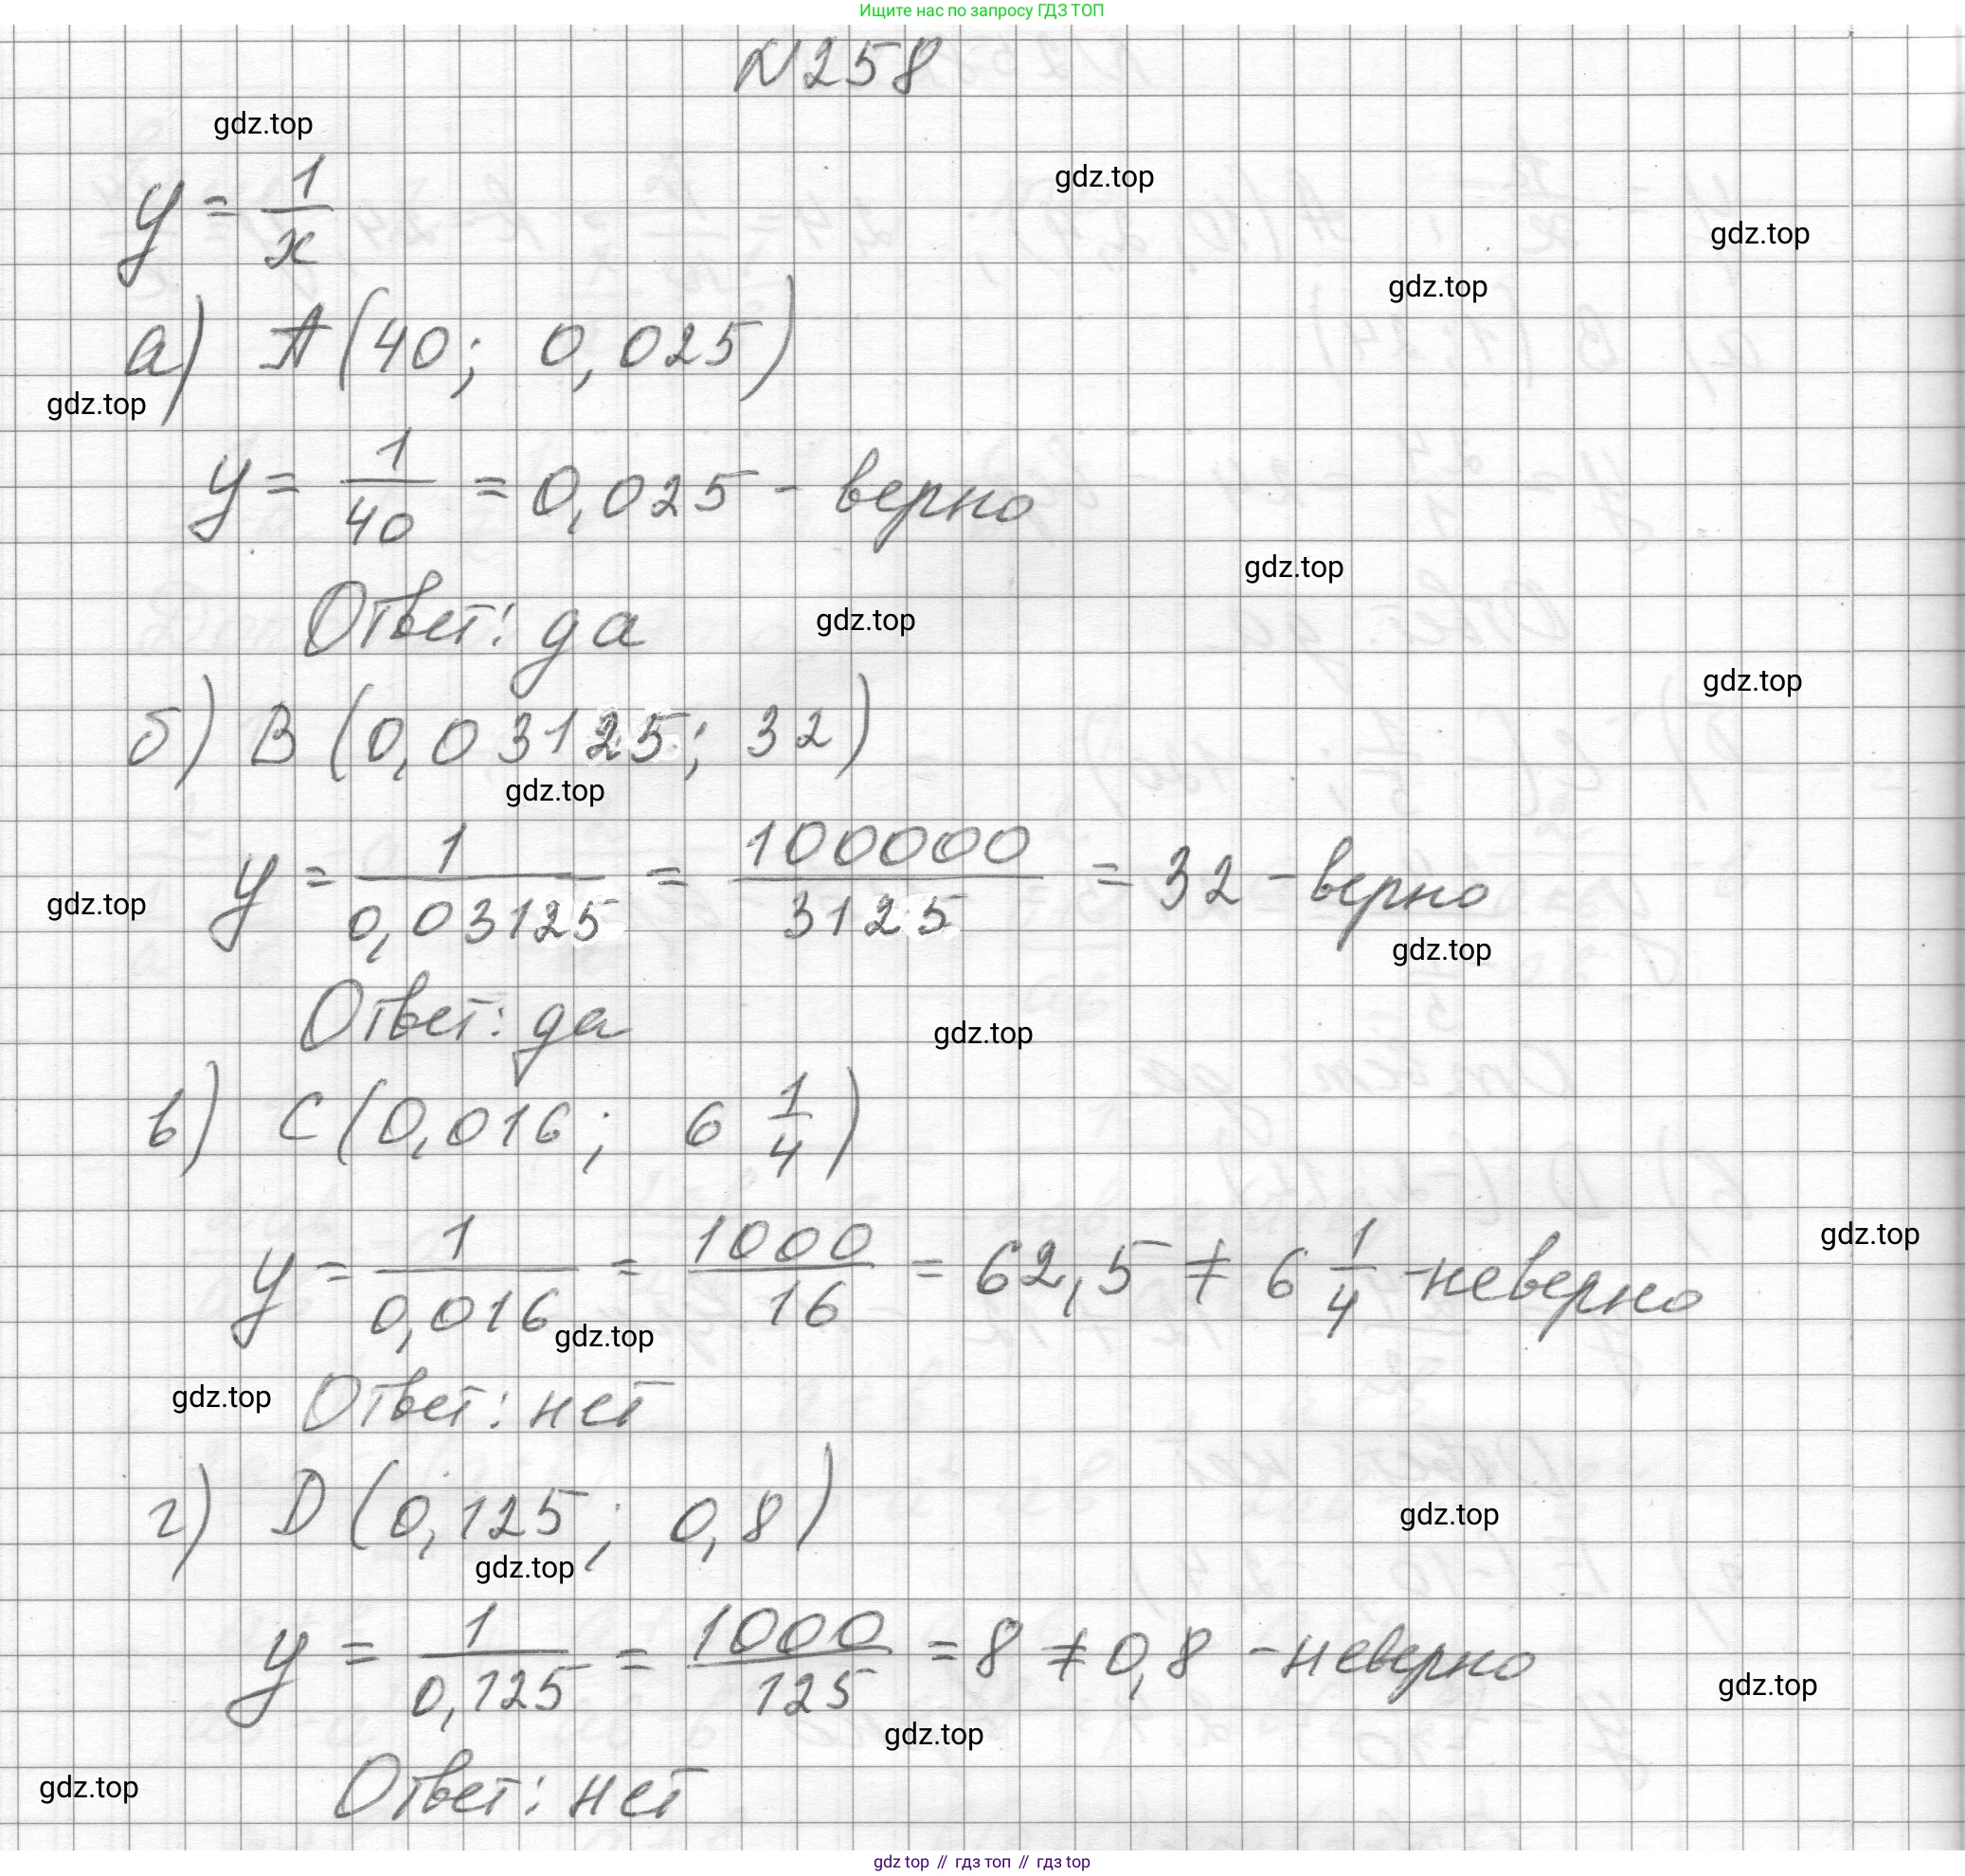 Ищите нас по запросу ГДЗ ТОП
N258
gdz.top
y = 1/x
gdz.top
gdz.top
gdz.top
а) A(40; 0,025)
gdz.top
y = 1/40 = 0,025 - верно
gdz.top
Ответ: да
gdz.top
gdz.top
б) B(0,03125; 32)
gdz.top
y = 1/0,03125 = 100000/3125 = 32 - верно
gdz.top
gdz.top
Ответ: да
gdz.top
в) C(0,016; 6 1/4)
gdz.top
y = 1/0,016 = 1000/16 = 62,5 ≠ 6 1/4 - неверно
gdz.top
gdz.top
Ответ: нет
г) D(0,125; 0,8)
gdz.top
gdz.top
y = 1/0,125 = 1000/125 = 8 ≠ 0,8 - неверно
gdz.top
gdz.top
gdz.top
Ответ: нет
gdz top // гдз топ // гдз top